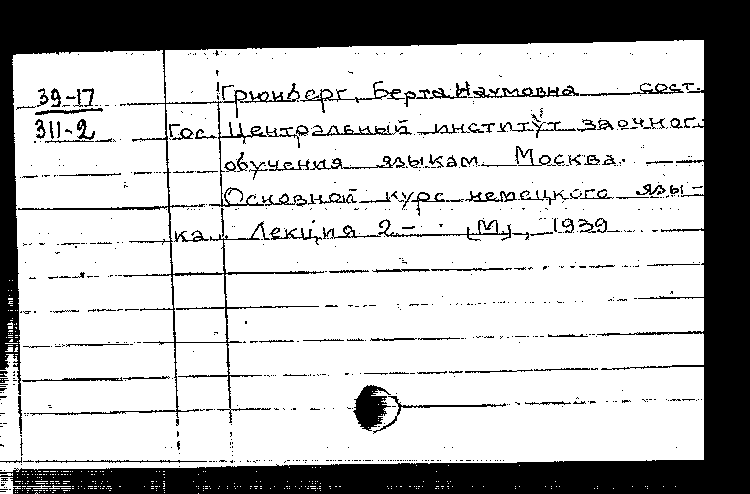 39-17 Грюнберг, Берта Наумовна сост.
311-2 Гос. Центральный институт заочног.
обучения языкам. Москва.
Основной курс немецкого язы-
ка. Лекция 2- . [М], 1939